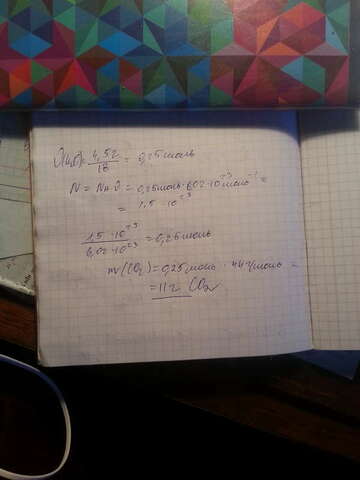 ν(H₂O) = 4,5г/18 = 0,25моль
N = Nₐ·ν = 0,25моль·6,02·10²³моль⁻¹ =
= 1,5 · 10²³
1,5 · 10²³ / 6,02 · 10²³ = 0,25моль
m(CO₂) = 0,25моль · 44г/моль =
= 11г CO₂